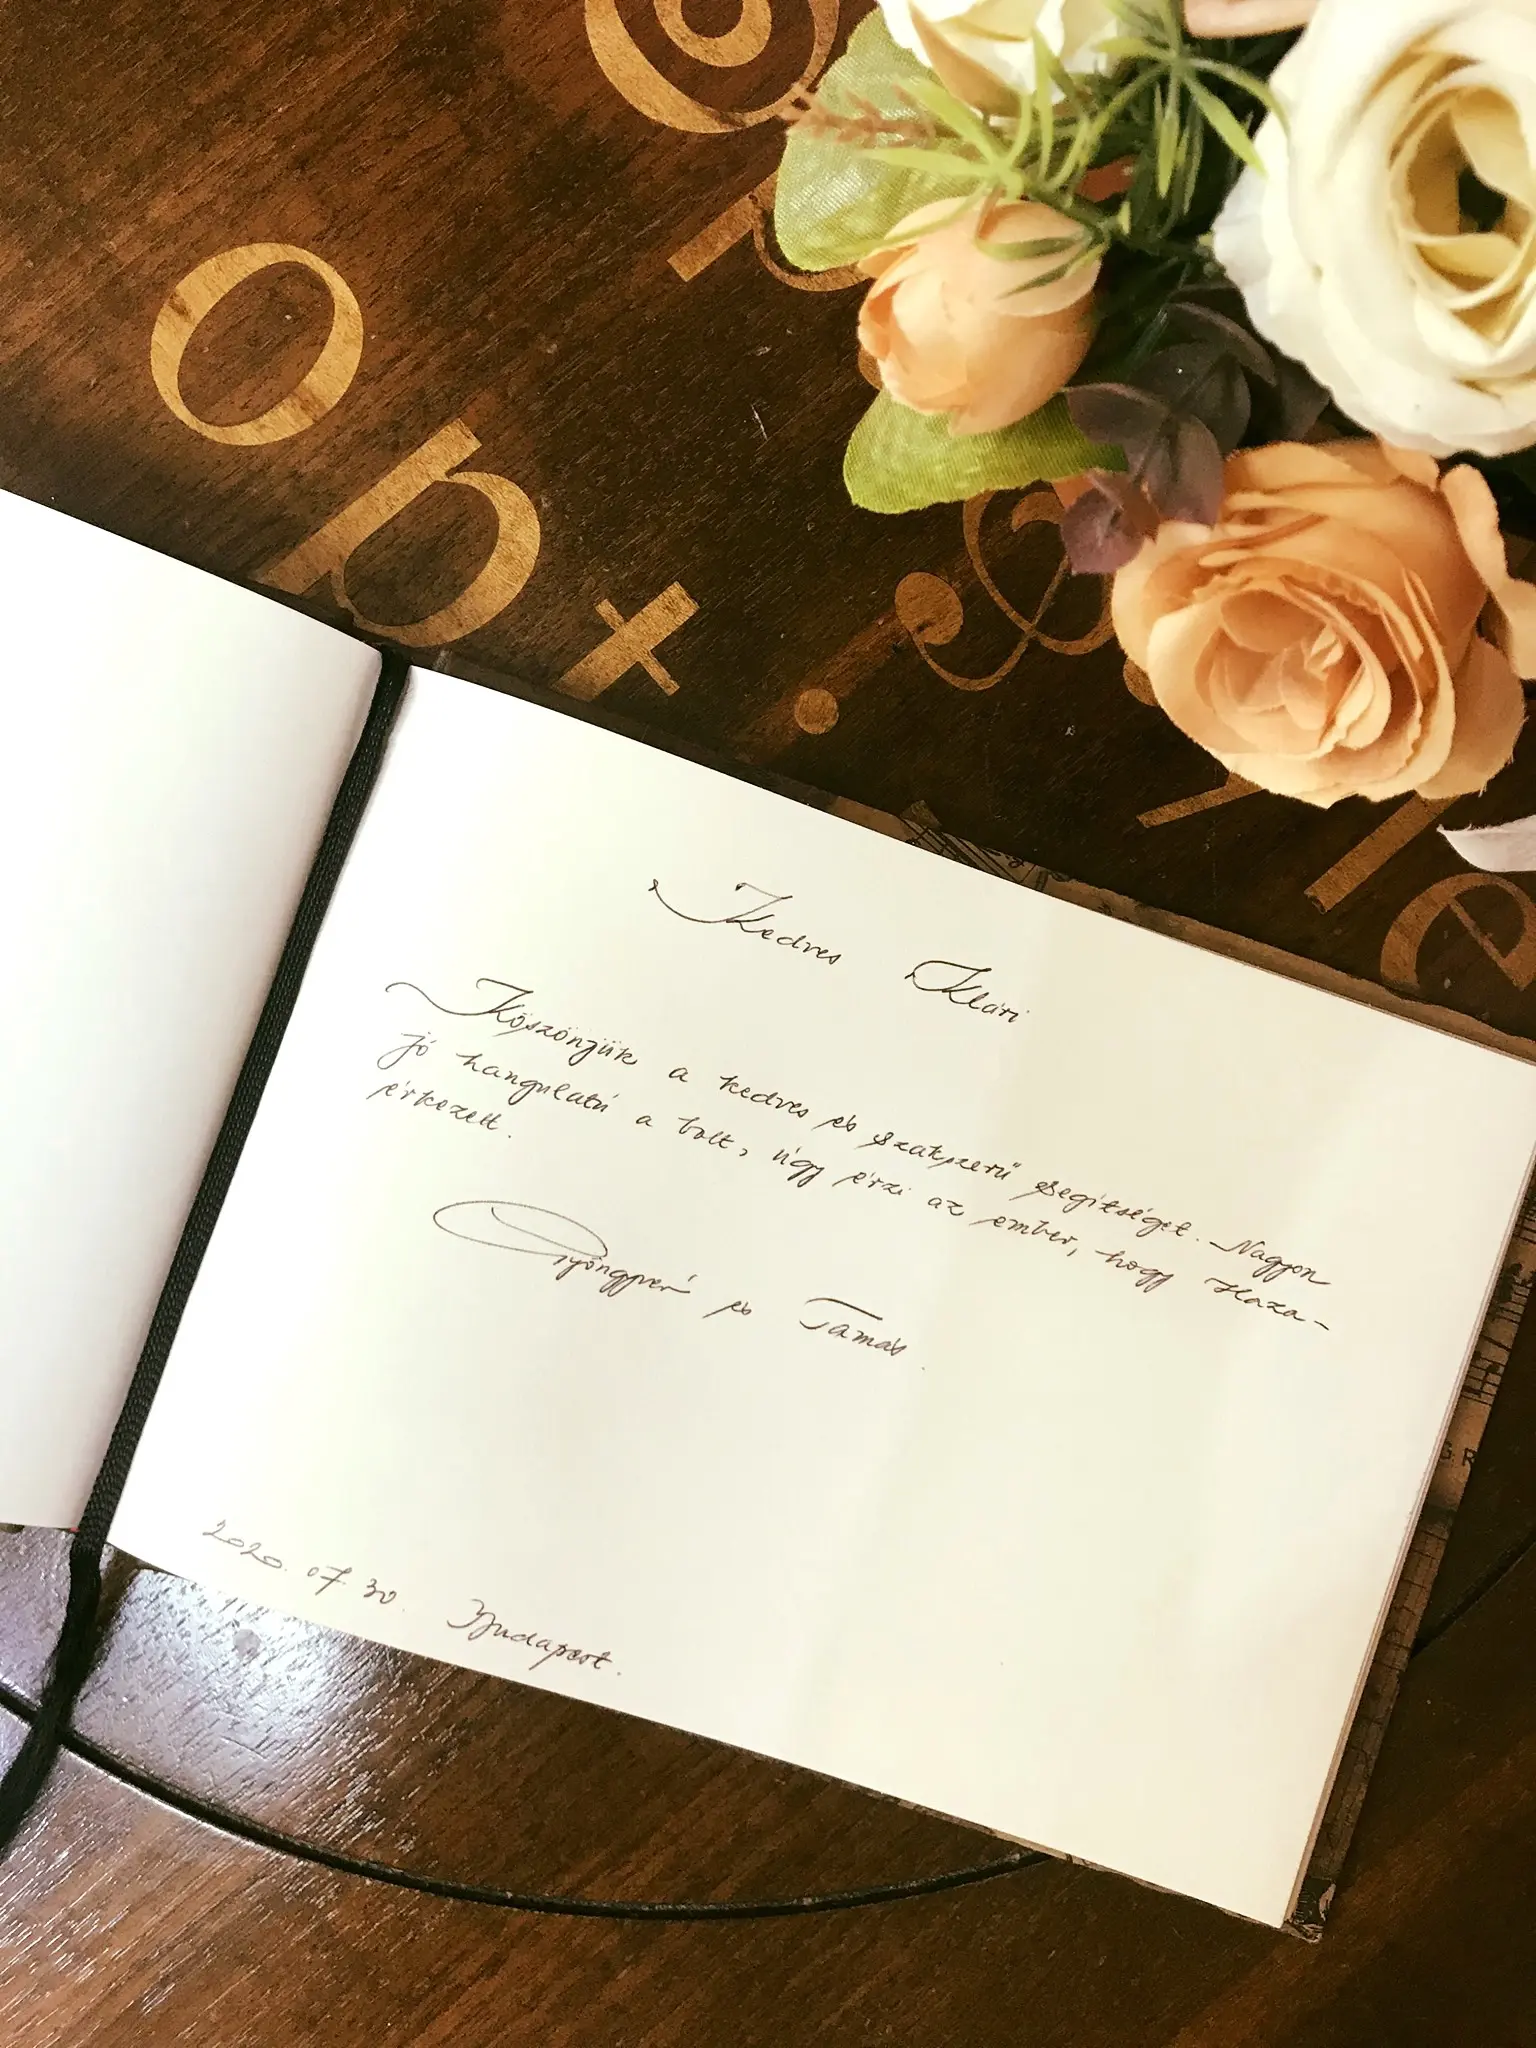 Kedves Klári
Köszönjük a kedves és szakszerű segítséget. Nagyon
jó hangulatú a bolt, úgy érzi az ember, hogy Haza-
érkezett.
Gyöngyvér és Tamás.
2020. 07. 30. Budapest.